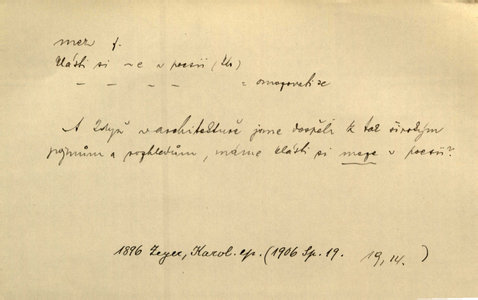 mez f.
klásti si ~e v poesii (Us)
– – – – = omezovati se
A když v architektuře jsme dospěli k tak širokým
pojmům a rozhledům, máme klásti si meze v poesii?
1896 Zeyer, Karol. ep. (1906 Sp. 19. 19, 14. )